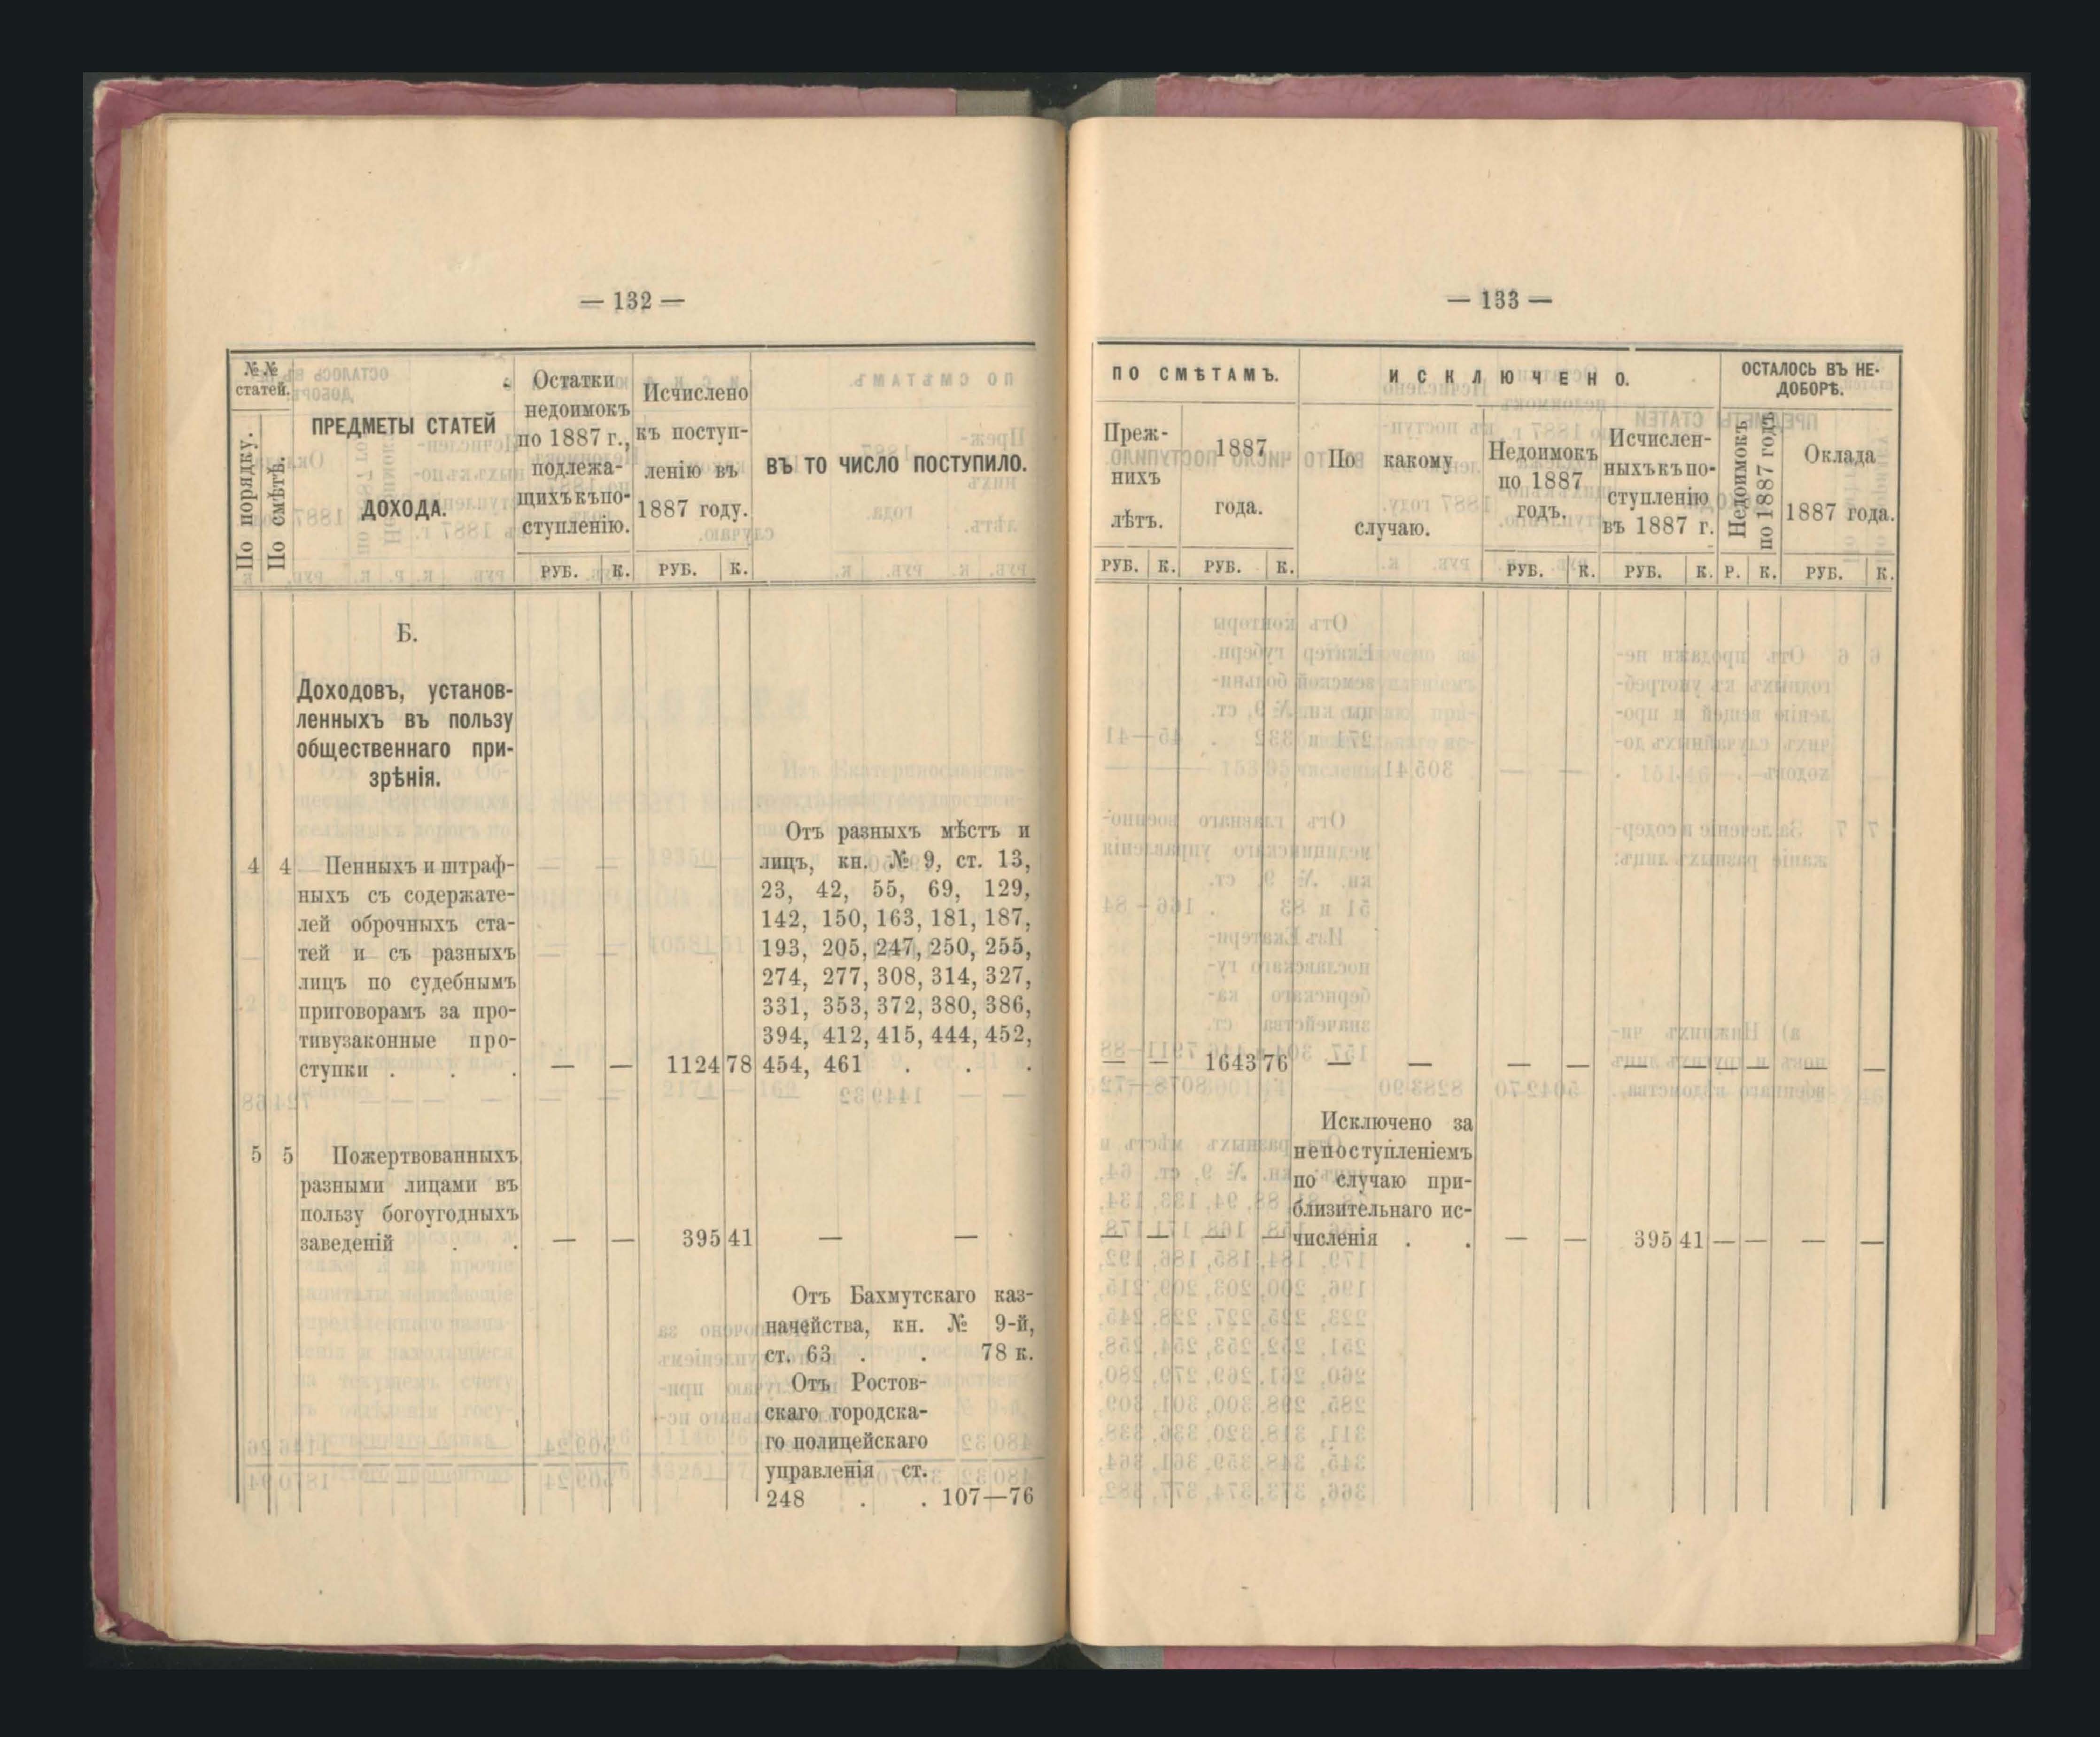 — 132 —
№№ статей.
По порядку.
По смѣтѣ.
ПРЕДМЕТЫ СТАТЕЙ
ДОХОДА.
Остатки
недоимокъ
по 1887 г.,
подлежа-
щихъ къ по-
ступленію.
Исчислено
къ поступ-
ленію въ
1887 году.
ВЪ ТО ЧИСЛО ПОСТУПИЛО.
РУБ. К. РУБ. К.
Б.
Доходовъ, установ-
ленныхъ въ пользу
общественнаго при-
зрѣнія.
4 4 Пенныхъ и штраф-
ныхъ съ содержате-
лей оброчныхъ ста-
тей и съ разныхъ
лицъ по судебнымъ
приговорамъ за про-
тивузаконные про-
ступки . . . — — 1124 78
Отъ разныхъ мѣстъ и
лицъ, кн. № 9, ст. 13,
23, 42, 55, 69, 129,
142, 150, 163, 181, 187,
193, 205, 247, 250, 255,
274, 277, 308, 314, 327,
331, 353, 372, 380, 386,
394, 412, 415, 444, 452,
454, 461 . . .
5 5 Пожертвованныхъ
разными лицами въ
пользу богоугодныхъ
заведеній . . — — 395 41 — —
Отъ Бахмутскаго каз-
начейства, кн. № 9-й,
ст. 63 . . 78 к.
Отъ Ростов-
скаго городска-
го полицейскаго
управленія ст.
248 . . 107—76
— 133 —
ПО СМѢТАМЪ.
Преж-
нихъ
лѣтъ.
1887
года.
ИСКЛЮЧЕНО.
По какому
случаю.
Недоимокъ
по 1887
годъ.
Исчислен-
ныхъ къ по-
ступленію
въ 1887 г.
ОСТАЛОСЬ ВЪ НЕ-
ДОБОРѢ.
Недоимокъ
по 1887 годъ
Оклада
1887 года.
РУБ. К. РУБ. К. РУБ. К. РУБ. К. Р. К. РУБ. К.
— — 1643 76 — — — — — — — — — —
Исключено за
непоступленіемъ
по случаю при-
близительнаго ис-
— — — — численія . . — — 395 41 — — — —